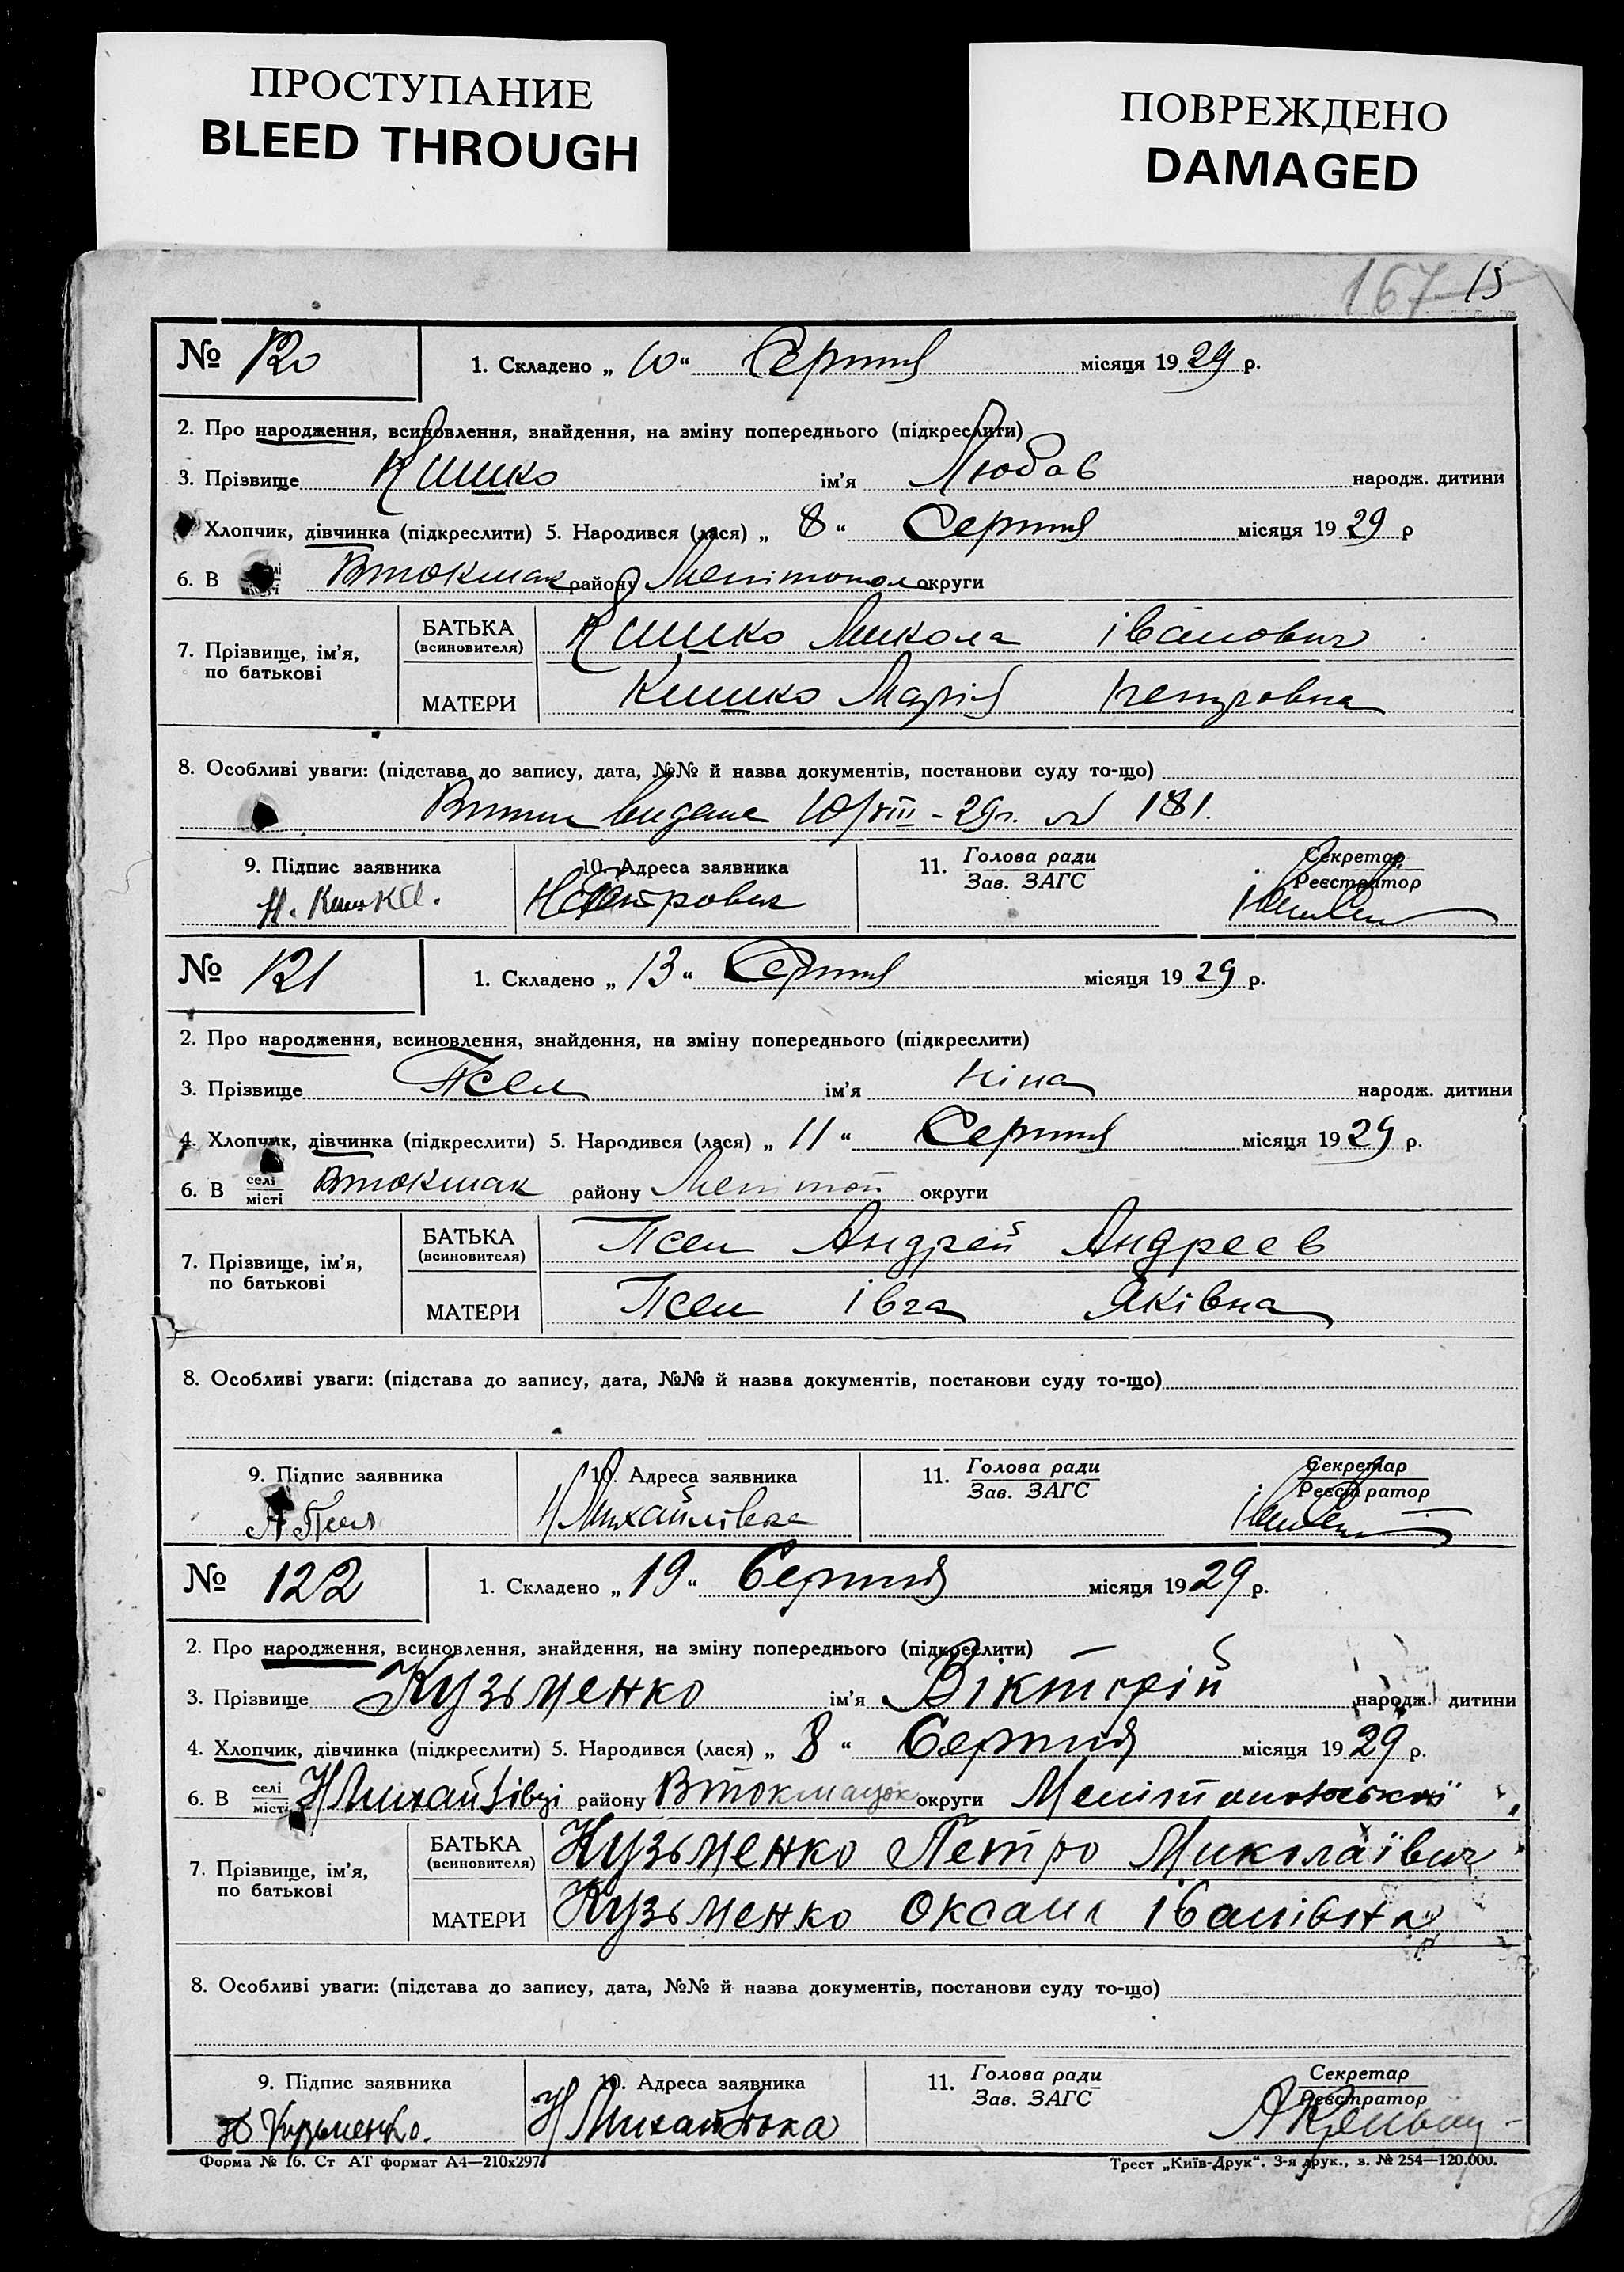 ПРОСТУПАНИЕ
BLEED THROUGH
ПОВРЕЖДЕНО
DAMAGED
167 15
№ 120
1. Складено „ 10 “ Серпня місяця 1929 р.
2. Про народження, всиновлення, знайдення, на зміну попереднього (підкреслити)
3. Прізвище Кишко ім’я Любов народж. дитини
Хлопчик, дівчинка (підкреслити) 5. Народився (лася) „ 8 “ Серпня місяця 1929 р
6. В Втокмак району Мелітопол округи
7. Прізвище, ім’я, по батькові
БАТЬКА (всиновителя) Кишко Микола Іванович
МАТЕРИ Кишко Марія Петровна
8. Особливі уваги: (підстава до запису, дата, №№ й назва документів, постанови суду то-що)
видане 10/VIII - 29 г. № 181.
9. Підпис заявника
10. Адреса заявника
11. Голова ради
Зав. ЗАГС
Секретар
Реєстратор
Н. Кишка.
№ 121
1. Складено „ 13 “ Серпня місяця 1929 р.
2. Про народження, всиновлення, знайдення, на зміну попереднього (підкреслити)
3. Прізвище Псел ім’я Ніна народж. дитини
4. Хлопчик, дівчинка (підкреслити) 5. Народився (лася) „ 11 “ Серпня місяця 1929 р.
6. В селі місті Втокмак району Мелітоп округи
7. Прізвище, ім’я, по батькові
БАТЬКА (всиновителя) Псел Андрей Андреев
МАТЕРИ Псел Івга Яківна
8. Особливі уваги: (підстава до запису, дата, №№ й назва документів, постанови суду то-що)
9. Підпис заявника
10. Адреса заявника
11. Голова ради
Зав. ЗАГС
Секретар
Реєстратор
Н Михайлівка
№ 122
1. Складено „ 19 “ Серпня місяця 1929 р.
2. Про народження, всиновлення, знайдення, на зміну попереднього (підкреслити)
3. Прізвище Кузьменко ім’я Вікторій народж. дитини
4. Хлопчик, дівчинка (підкреслити) 5. Народився (лася) „ 8 “ Серпня місяця 1929 р.
6. В селі місті Н Михайлівці району Втокмацьк округи Мелітопольської
7. Прізвище, ім’я, по батькові
БАТЬКА (всиновителя) Кузьменко Петро Миколаївич
МАТЕРИ Кузьменко Оксана Іванівна
8. Особливі уваги: (підстава до запису, дата, №№ й назва документів, постанови суду то-що)
9. Підпис заявника
10. Адреса заявника
11. Голова ради
Зав. ЗАГС
Секретар
Реєстратор
Кузьменко.
Н Михайлівка
Форма № 16. Ст АТ формат А4—210х297
Трест „Київ-Друк“. 3-я друк., з. № 254—120.000.